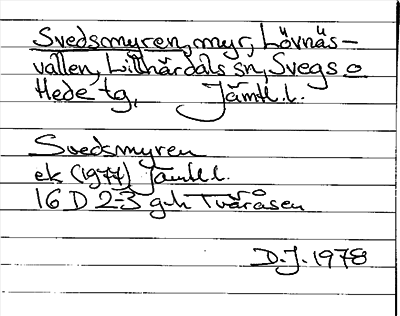 Svedsmyren, myr, Lövnäs-
vallen, Lillhärdals sn, Svegs o
Hede tg, Jämtl.l.
Svedsmyren
ek (1977) Jämtl l.
16 D 2-3 g-h Tvåråsen
D.J. 1978